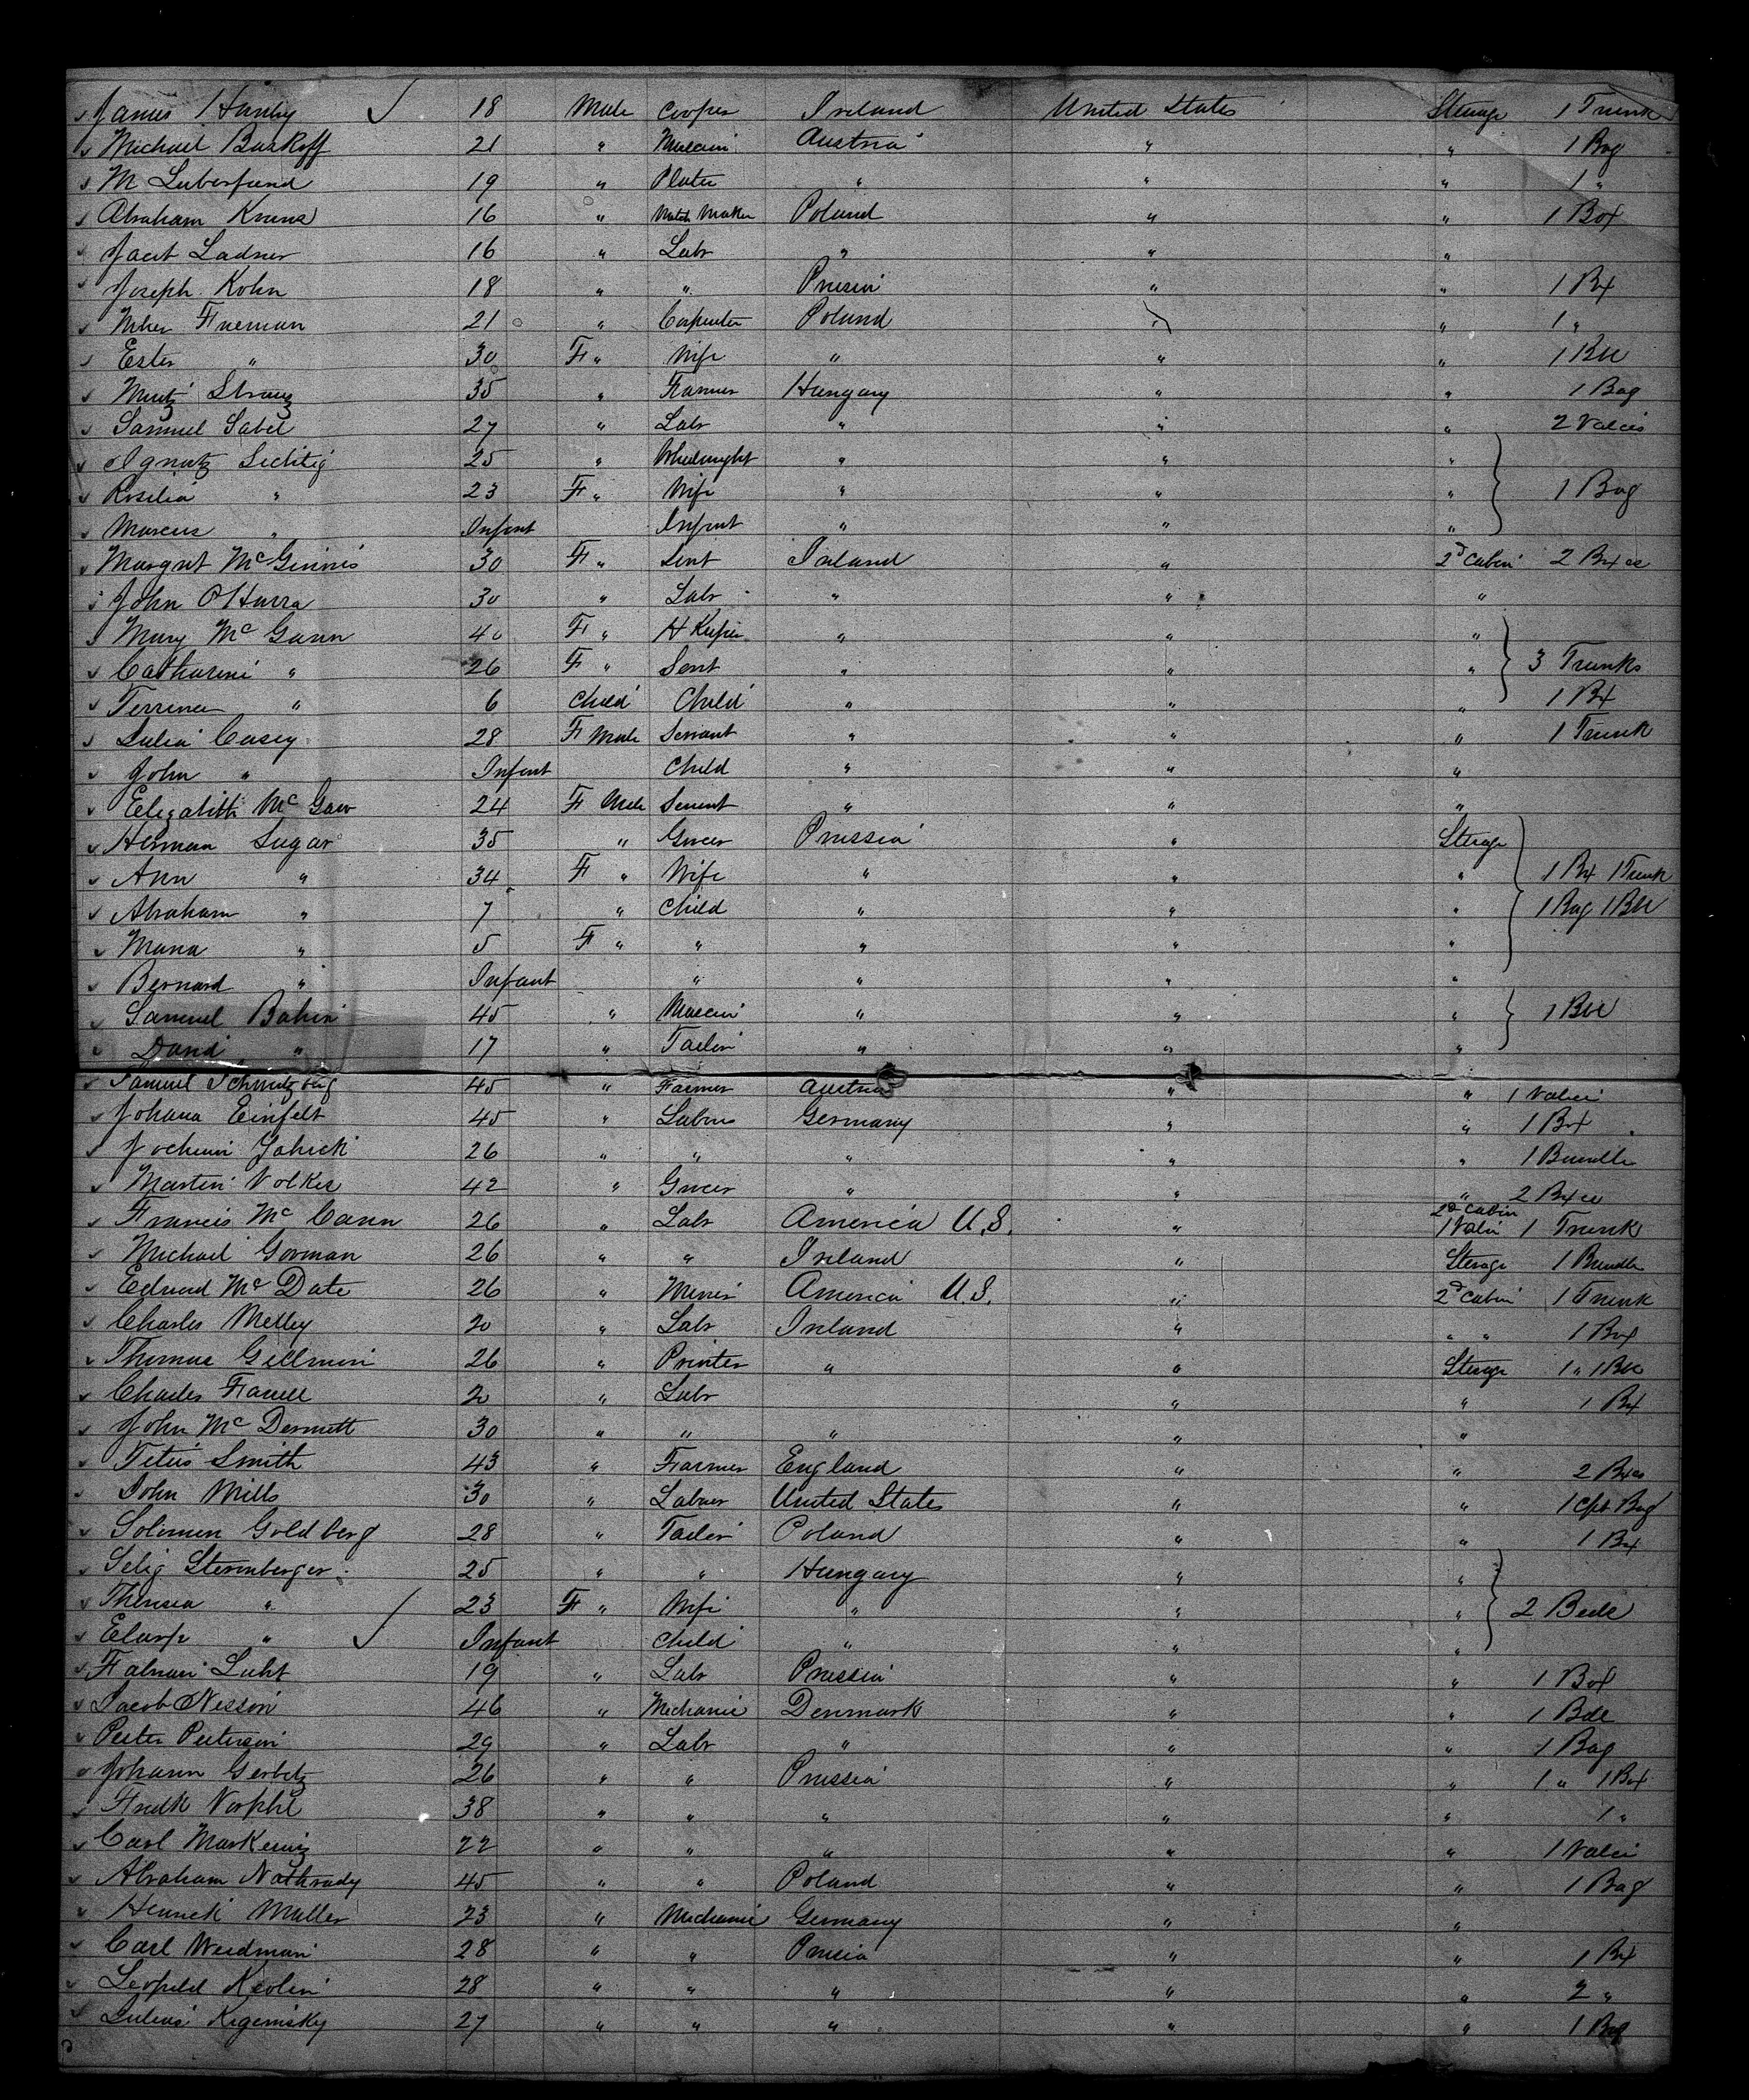 James Hanley 18 Male Cooper Ireland United States Sterage 1 Trunk
Michael Buskoff 21 " Musician Austria " " 1 Bag
M Luberfund 19 " Plater " " " 1 "
Abraham Kruns 16 " Match Maker Poland " " 1 Box
Jacob Ladner 16 " Labr " " "
Joseph Kohn 18 " " Prusia " " 1 Bx
Freeman 21 " Carpenter Poland " " 1 "
Ester " 30 F " Wife " " " 1 Bdl
Straus 35 " Farmer Hungary " " 1 Bag
Samuel Sabel 27 " Labr " " " 2 Valeis
Ignatz Lichtig 25 " Wheelwright " " "
Rosilia " 23 F " Wife " " " 1 Bag
Marcus " Infant Infant " " "
Margret McGinnis 30 F " Servt Ireland " 2d Cabin 2 Bxes
John O'Harra 30 " Labr " " "
Mary McGann 40 F " H Keeper " " "
Catharine " 26 F " Servt " " " 3 Trunks
Terrence " 6 Child Child " " " 1 Bx
Julia Casey 28 F Male Servant " " " 1 Trunk
John " Infant Child " " "
Elizabeth McGaw 24 F Male Servent " " "
Herman Sugar 35 " Grocer Prussia " Sterage
Ann " 34 F " Wife " " " 1 Bx 1 Trunk
Abraham " 7 " Child " " " 1 Bag 1 Bdl
Maria " 5 F " " " " "
Bernard " Infant " " " "
Samuel Bahin 45 " Musician " " " 1 Bdl
David " 17 " Tailor " " "
Samuel Schmitzberg 45 " Farmer Austria " " 1 Valeis
Johana Einfelt 45 " Labour Germany " " 1 Bx
Jochim Jahick 26 " " " " " 1 Bundle
Martin Volker 42 " Grocer " " " 2 Bxes
Francis McCann 26 " Labr America U.S. " 2d Cabin 1 Valis 1 Trunk
Michael Gorman 26 " " Ireland " Sterage 1 Bundle
Edward McDate 26 " Miner America U.S. " 2d Cabin 1 Trunk
Charles Melley 20 " Labr Ireland " " " 1 Box
Thomas Gillman 26 " Printer " " Sterage 1 " 1 Bdl
Charles Farrell 20 " Labr " " 1 Bx
John McDermott 30 " " " " "
Titus Smith 43 " Farmer England " " 2 Bxes
John Mills 30 " Labour United States " " 1 Cpt Bag
Solomon Goldberg 28 " Tailor Poland " " 1 Bx
Selig Sternberger 25 " " Hungary " "
Theresa " 23 F " Wife " " " 2 Bdls
" Infant Child " " "
Luht 19 " Labr Prussia " " 1 Box
Jacob Nisson 46 " Mechanic Denmark " " 1 Bdl
Peter Peterson 29 " Labr " " " 1 Bag
Johann Gerbitz 26 " " Prussia " " 1 " 1 Box
Fredk Vorphl 38 " " " " " 1 "
Carl Markewitz 22 " " " " " 1 Valeis
Abraham Nathrady 45 " " Poland " " 1 Bag
Henrick Muller 23 " Mechanic Germany " "
Carl Weidman 28 " " Prusia " " 1 Bx
Leopold Keolin 28 " " " " " 2 "
Julius Kigemisky 27 " " " " " 1 Bag